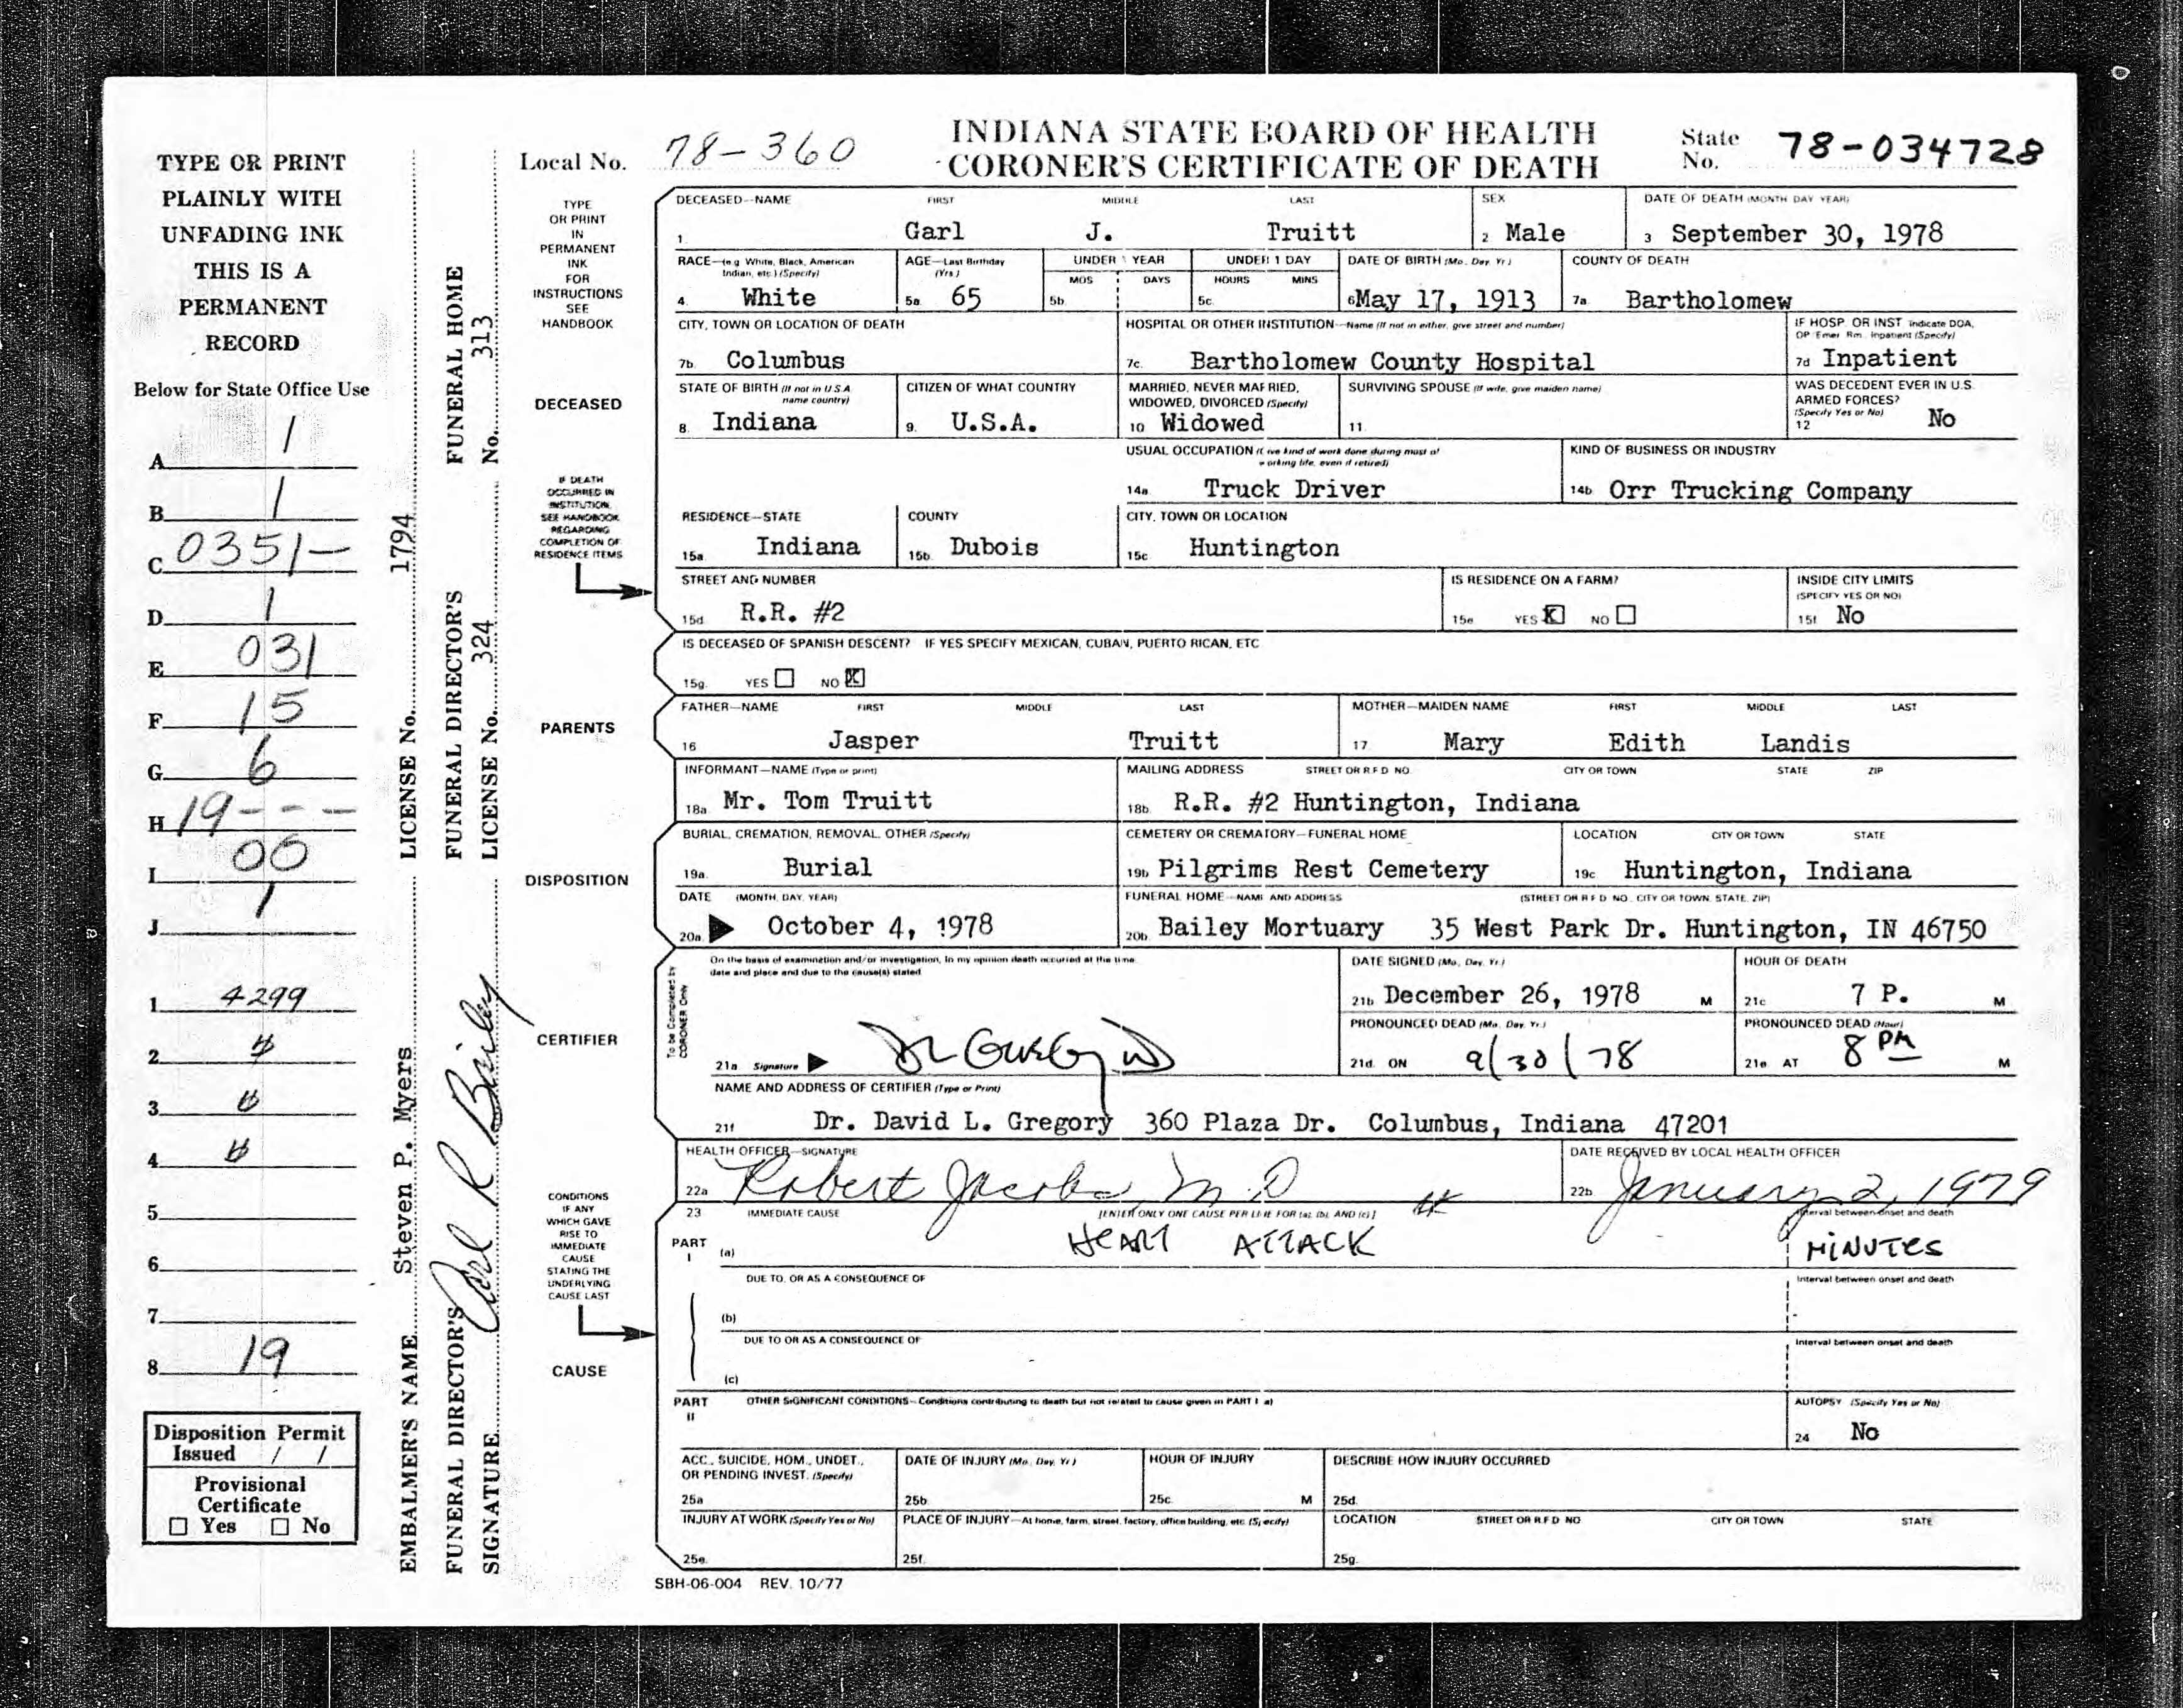 INDIANA STATE BOARD OF HEALTH
CORONER'S CERTIFICATE OF DEATH
Local No. 78-360
State No. 78-034728
TYPE OR PRINT
PLAINLY WITH
UNFADING INK
THIS IS A
PERMANENT
RECORD
Below for State Office Use
A 1
B 1
C 0351-
D 1
E 031
F 15
G 6
H 19---
I 00
J 1
1 4299
2
3
4
5
6
7
8 19
Disposition Permit
Issued / /
Provisional
Certificate
☐ Yes ☐ No
EMBALMER'S NAME Steven P. Myers LICENSE No. 1794
FUNERAL DIRECTOR'S SIGNATURE Carl R Bailey
FUNERAL DIRECTOR'S LICENSE No. 324
FUNERAL HOME No. 313
TYPE
OR PRINT
IN
PERMANENT
INK
FOR
INSTRUCTIONS
SEE
HANDBOOK
DECEASED
IF DEATH
OCCURRED IN
INSTITUTION
SEE HANDBOOK
REGARDING
COMPLETION OF
RESIDENCE ITEMS
PARENTS
DISPOSITION
CERTIFIER
CONDITIONS
IF ANY
WHICH GAVE
RISE TO
IMMEDIATE
CAUSE
STATING THE
UNDERLYING
CAUSE LAST
CAUSE
DECEASED—NAME FIRST MIDDLE LAST SEX DATE OF DEATH (MONTH DAY YEAR)
1. Garl J. Truitt 2 Male 3 September 30, 1978
RACE—(e.g. White, Black, American Indian, etc.) (Specify) AGE—Last Birthday (Yrs.) UNDER 1 YEAR UNDER 1 DAY DATE OF BIRTH (Mo. Day, Yr.) COUNTY OF DEATH
MOS DAYS HOURS MINS
4. White 5a. 65 5b. 5c. 6 May 17, 1913 7a. Bartholomew
CITY, TOWN OR LOCATION OF DEATH HOSPITAL OR OTHER INSTITUTION—Name (If not in either, give street and number) IF HOSP. OR INST. Indicate DOA, OP Emer Rm. Inpatient (Specify)
7b. Columbus 7c. Bartholomew County Hospital 7d Inpatient
STATE OF BIRTH (If not in U.S.A. name country) CITIZEN OF WHAT COUNTRY MARRIED, NEVER MARRIED, WIDOWED, DIVORCED (Specify) SURVIVING SPOUSE (If wife, give maiden name) WAS DECEDENT EVER IN U.S. ARMED FORCES? (Specify Yes or No)
8. Indiana 9. U.S.A. 10 Widowed 11. 12 No
USUAL OCCUPATION (Give kind of work done during most of working life, even if retired) KIND OF BUSINESS OR INDUSTRY
14a. Truck Driver 14b Orr Trucking Company
RESIDENCE—STATE COUNTY CITY, TOWN OR LOCATION
15a. Indiana 15b. Dubois 15c. Huntington
STREET AND NUMBER IS RESIDENCE ON A FARM? INSIDE CITY LIMITS (SPECIFY YES OR NO)
15d. R.R. #2 15e YES ☒ NO ☐ 15f. No
IS DECEASED OF SPANISH DESCENT? IF YES SPECIFY MEXICAN, CUBAN, PUERTO RICAN, ETC
15g. YES ☐ NO ☒
FATHER—NAME FIRST MIDDLE LAST MOTHER—MAIDEN NAME FIRST MIDDLE LAST
16 Jasper Truitt 17. Mary Edith Landis
INFORMANT—NAME (Type or print) MAILING ADDRESS STREET OR R.F.D NO. CITY OR TOWN STATE ZIP
18a. Mr. Tom Truitt 18b. R.R. #2 Huntington, Indiana
BURIAL, CREMATION, REMOVAL, OTHER (Specify) CEMETERY OR CREMATORY—FUNERAL HOME LOCATION CITY OR TOWN STATE
19a. Burial 19b Pilgrims Rest Cemetery 19c Huntington, Indiana
DATE (MONTH, DAY, YEAR) FUNERAL HOME—NAME AND ADDRESS (STREET OR R.F.D. NO., CITY OR TOWN, STATE, ZIP)
20a. October 4, 1978 20b. Bailey Mortuary 35 West Park Dr. Huntington, IN 46750
To be Completed by CORONER Only
On the basis of examination and/or investigation, in my opinion death occurred at the time date and place and due to the cause(s) stated
DATE SIGNED (Mo., Day, Yr.) HOUR OF DEATH
21b. December 26, 1978 M 21c 7 P. M
PRONOUNCED DEAD (Mo., Day, Yr.) PRONOUNCED DEAD (Hour)
21a Signature DL Gregory MD 21d. ON 9/30/78 21e. AT 8 PM M
NAME AND ADDRESS OF CERTIFIER (Type or Print)
21f Dr. David L. Gregory 360 Plaza Dr. Columbus, Indiana 47201
HEALTH OFFICER—SIGNATURE DATE RECEIVED BY LOCAL HEALTH OFFICER
22a Robert Jacobs, M.D 22b January 2, 1979
23 IMMEDIATE CAUSE [ENTER ONLY ONE CAUSE PER LINE FOR (a), (b), AND (c)] Interval between onset and death
PART I (a) HEART ATTACK MINUTES
DUE TO, OR AS A CONSEQUENCE OF Interval between onset and death
(b)
DUE TO OR AS A CONSEQUENCE OF Interval between onset and death
(c)
PART II OTHER SIGNIFICANT CONDITIONS—Conditions contributing to death but not related to cause given in PART I a) AUTOPSY (Specify Yes or No)
24 No
ACC., SUICIDE, HOM., UNDET., OR PENDING INVEST. (Specify) DATE OF INJURY (Mo., Day, Yr.) HOUR OF INJURY DESCRIBE HOW INJURY OCCURRED
25a 25b 25c. M 25d.
INJURY AT WORK (Specify Yes or No) PLACE OF INJURY—At home, farm, street, factory, office building, etc. (Specify) LOCATION STREET OR R.F.D NO CITY OR TOWN STATE
25e. 25f. 25g.
SBH-06-004 REV. 10/77